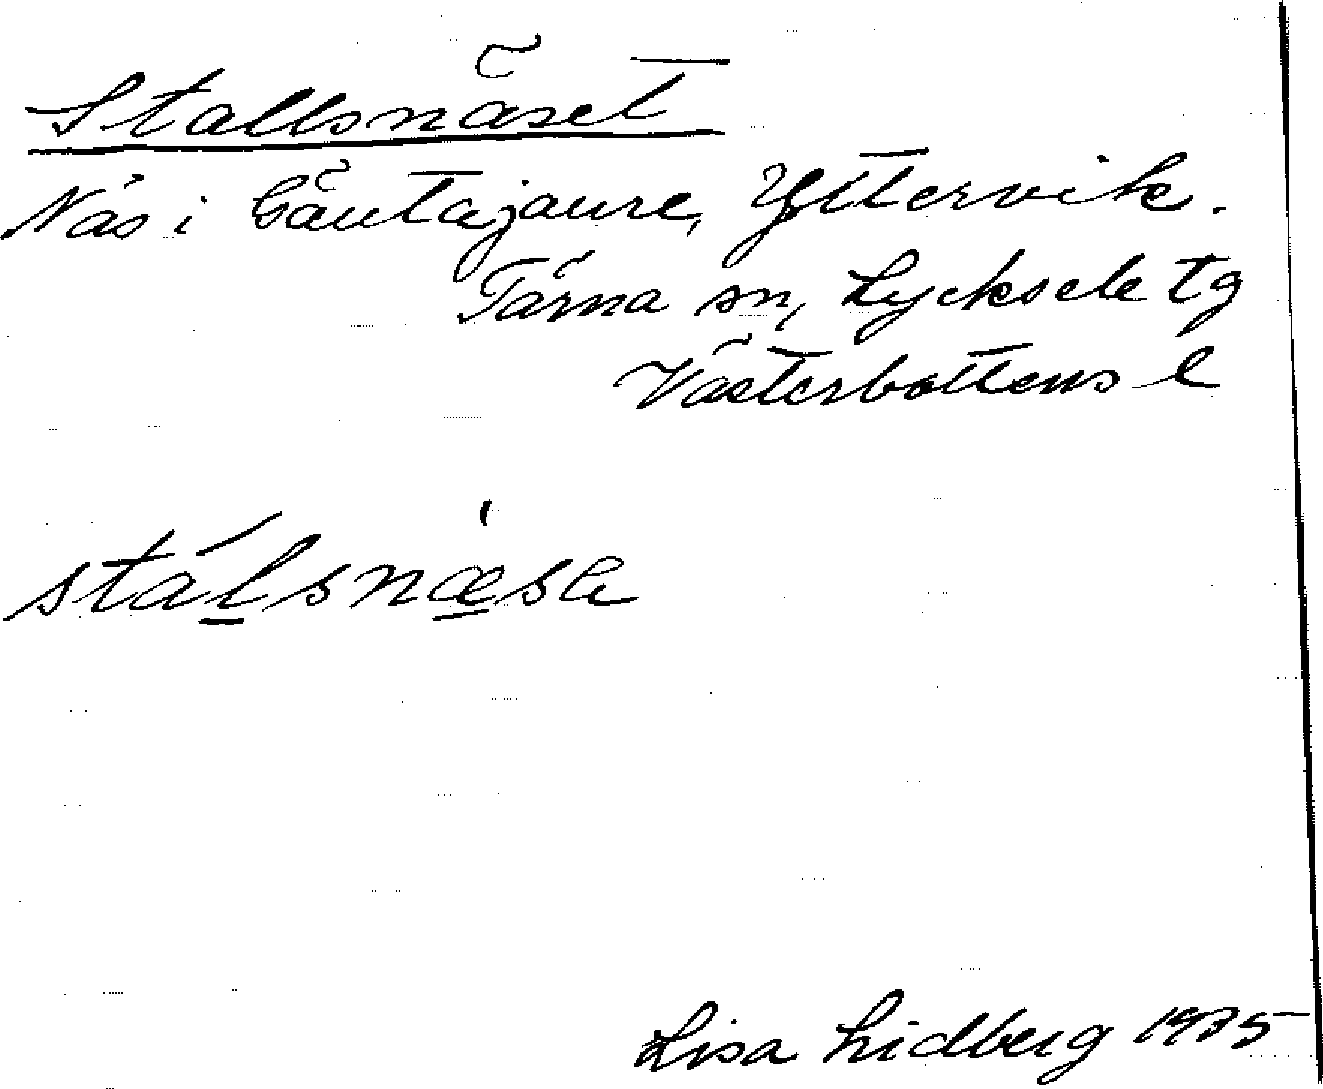 Stallsnäset
Näs i Gäutajaure, Yttervik.
Tärna sn, Lycksele tg
Västerbottens l
stálsnæ̲'se
Lisa Lidberg 1975